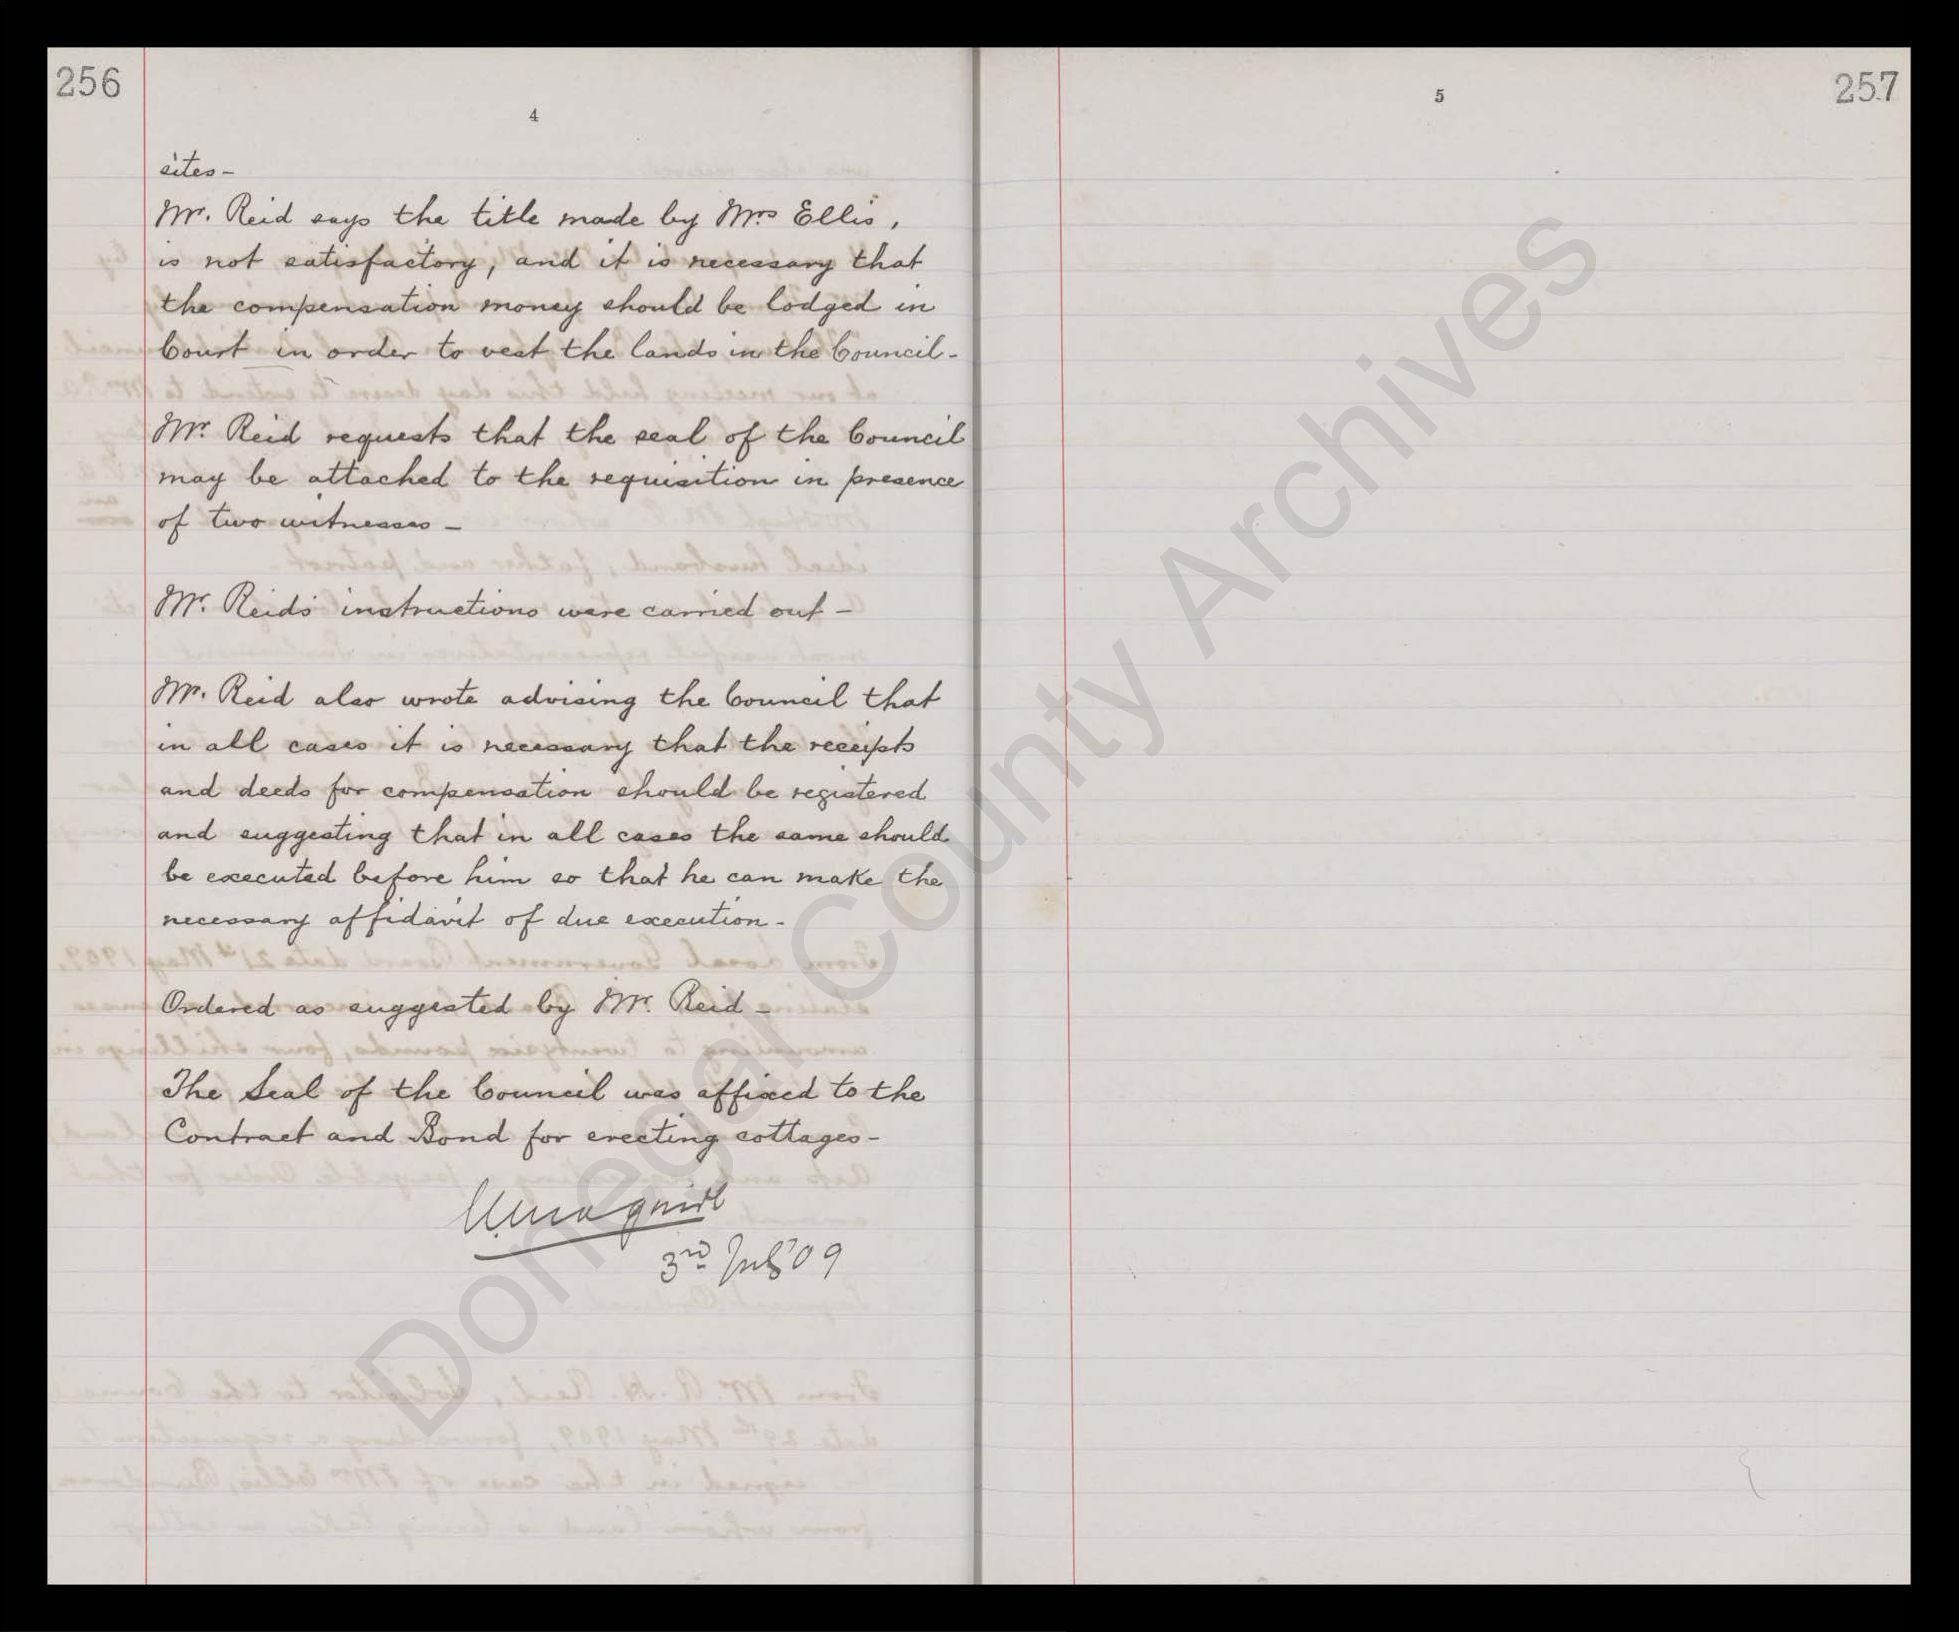 256
4
sites -
Mr. Reid says the title made by Mrs Ellis,
is not satisfactory, and it is necessary that
the compensation money should be lodged in
Court in order to vest the lands in the Council -
Mr. Reid requests that the seal of the Council
may be attached to the requisition in presence
of two witnesses -
Mr. Reid's instructions were carried out -
Mr. Reid also wrote advising the Council that
in all cases it is necessary that the receipts
and deeds for compensation should be registered
and suggesting that in all cases the same should
be executed before him so that he can make the
necessary affidavit of due execution -
Ordered as suggested by Mr. Reid -
The Seal of the Council was affixed to the
Contract and Bond for erecting cottages -
3rd July '09
5
257
Donegal County Archives